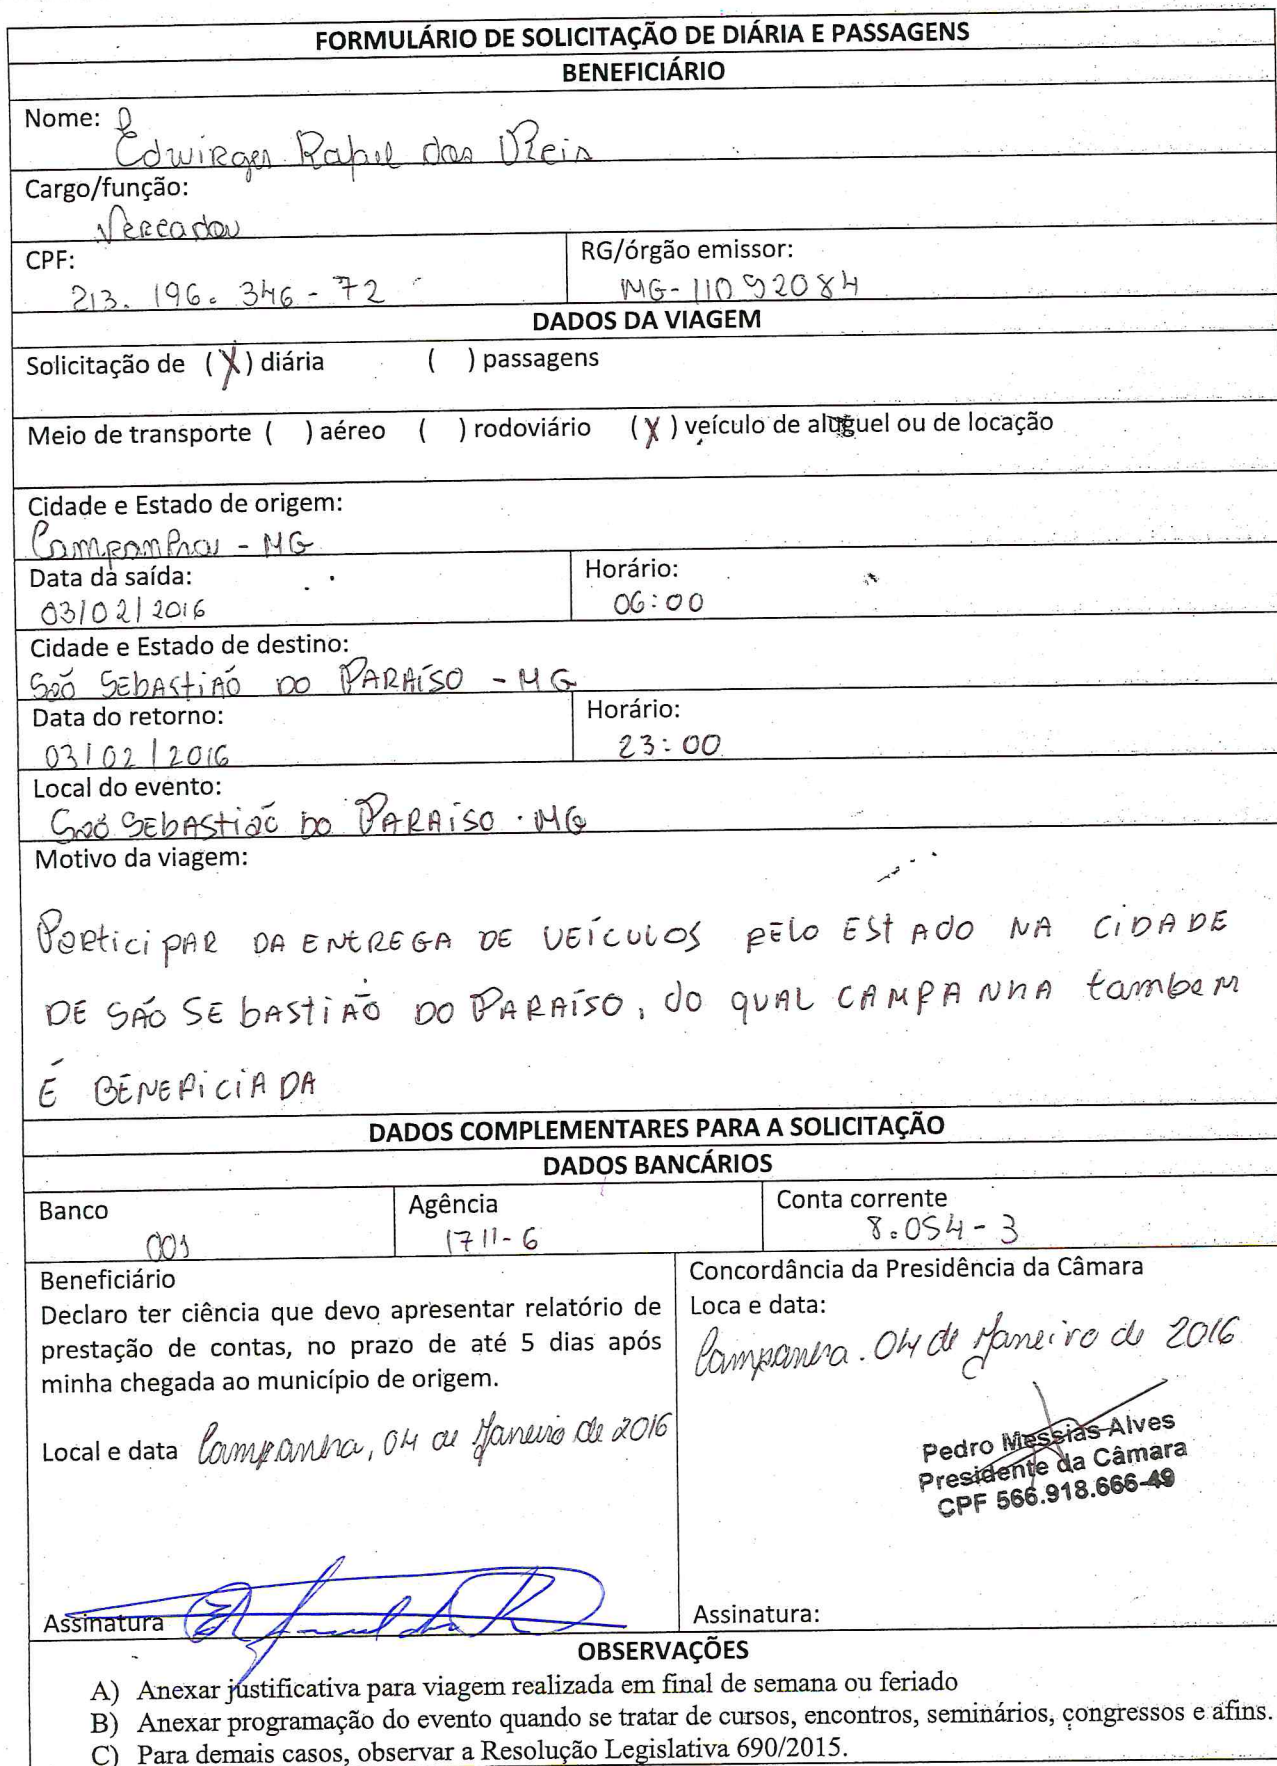 FORMULÁRIO DE SOLICITAÇÃO DE DIÁRIA E PASSAGENS
BENEFICIÁRIO
Nome:
Edwirges Rafael dos Reis
Cargo/função:
Vereador
CPF:
213.196.346-72
RG/órgão emissor:
MG-11092084
DADOS DA VIAGEM
Solicitação de (X) diária ( ) passagens
Meio de transporte ( ) aéreo ( ) rodoviário (X) veículo de aluguel ou de locação
Cidade e Estado de origem:
Campanha - MG
Data da saída:
03/02/2016
Horário:
06:00
Cidade e Estado de destino:
São SEbAStiÃO DO PARAÍSO - MG
Data do retorno:
03/02/2016
Horário:
23:00
Local do evento:
São SEbAStião DO PARAÍSO - MG
Motivo da viagem:
PARticiPAR DA ENtREGA DE VEÍCULOS PELO EStADO NA CIDADE
DE SÃO SEbAStiÃO DO PARAÍSO, do qUAL CAMPANhA tambem
É BENEFICIADA
DADOS COMPLEMENTARES PARA A SOLICITAÇÃO
DADOS BANCÁRIOS
Banco
001
Agência
1711-6
Conta corrente
8.054-3
Beneficiário
Declaro ter ciência que devo apresentar relatório de
prestação de contas, no prazo de até 5 dias após
minha chegada ao município de origem.
Local e data Campanha, 04 de Janeiro de 2016
Assinatura
Concordância da Presidência da Câmara
Loca e data:
Campanha. 04 de Janeiro de 2016
Pedro Messias Alves
Presidente da Câmara
CPF 566.918.666-49
Assinatura:
OBSERVAÇÕES
A) Anexar justificativa para viagem realizada em final de semana ou feriado
B) Anexar programação do evento quando se tratar de cursos, encontros, seminários, congressos e afins.
C) Para demais casos, observar a Resolução Legislativa 690/2015.